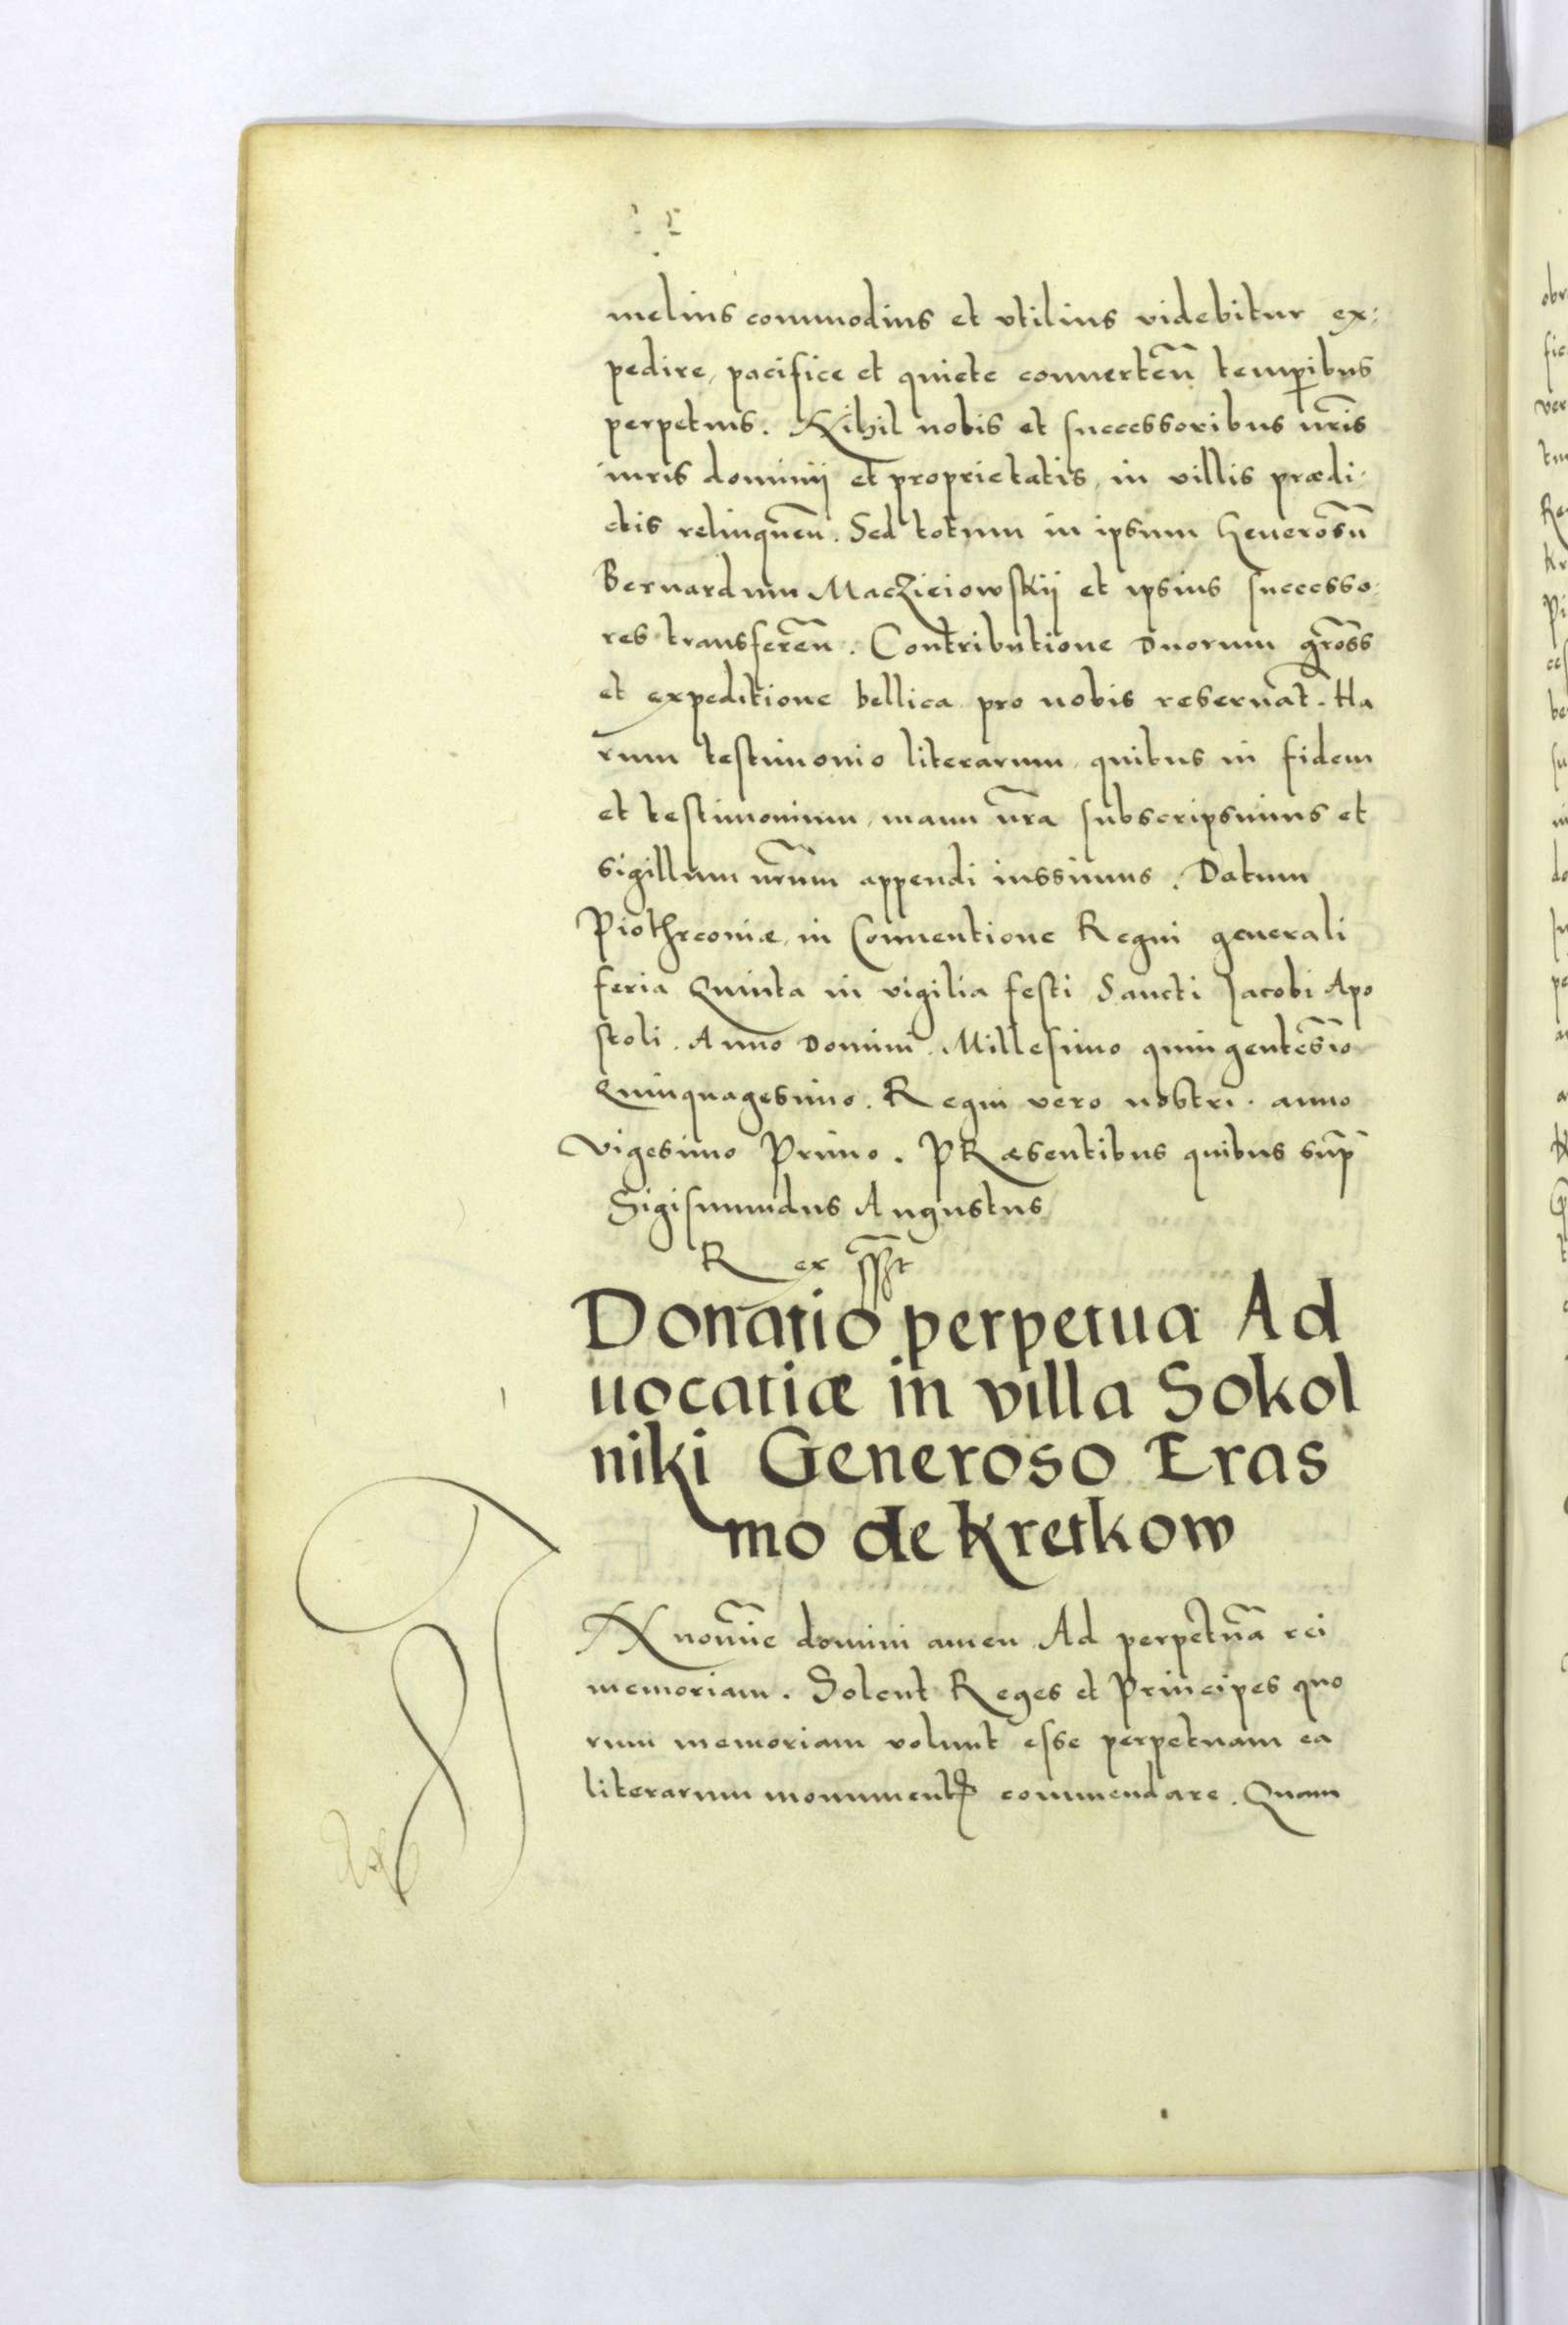 melius commodius et vtilius videbitur ex:
pedire, pacifice et quiete conuerteñ temp̱ibus
perpetuis. Nihil nobis et successoribus nr̃is
iuris dominij et proprietatis, in villis prædi
ctis relinqueñ. Sed totum in ipsum Generosũ
Bernardum Macziciowskij et ipsius successo
res transfereñ. Contributione Duorum gross̃
et expeditione bellica pro nobis reseruat̃. Ha
rum testimonio literarum, quibus in fidem
et testimonium, manu nr̃a subscripsimus et
sigillum nr̃um appendi iussimus. Datum
Piothrconiæ, in Conuentione Regni generali
feria Quinta in vigilia festi Sancti Jacobi Apo
stoli. Anno Domini. Millesimo quingentesĩo
Quinquagesimo. Regni vero nostri. anno
Vigesimo Primo. PRæsentibus quibus sup̃
Sigismundus Augustus
Rex
Donatio perpetua Ad
uocatiæ in villa Sokol
niki Generoso Eras
mo de Kretkow
IN nom̃ie domini amen Ad perpetuã rei
memoriam. Solent Reges et Principes quo
rum memoriam volunt esse perpetuam ea
literarum monumentꝭ commendare. Quam